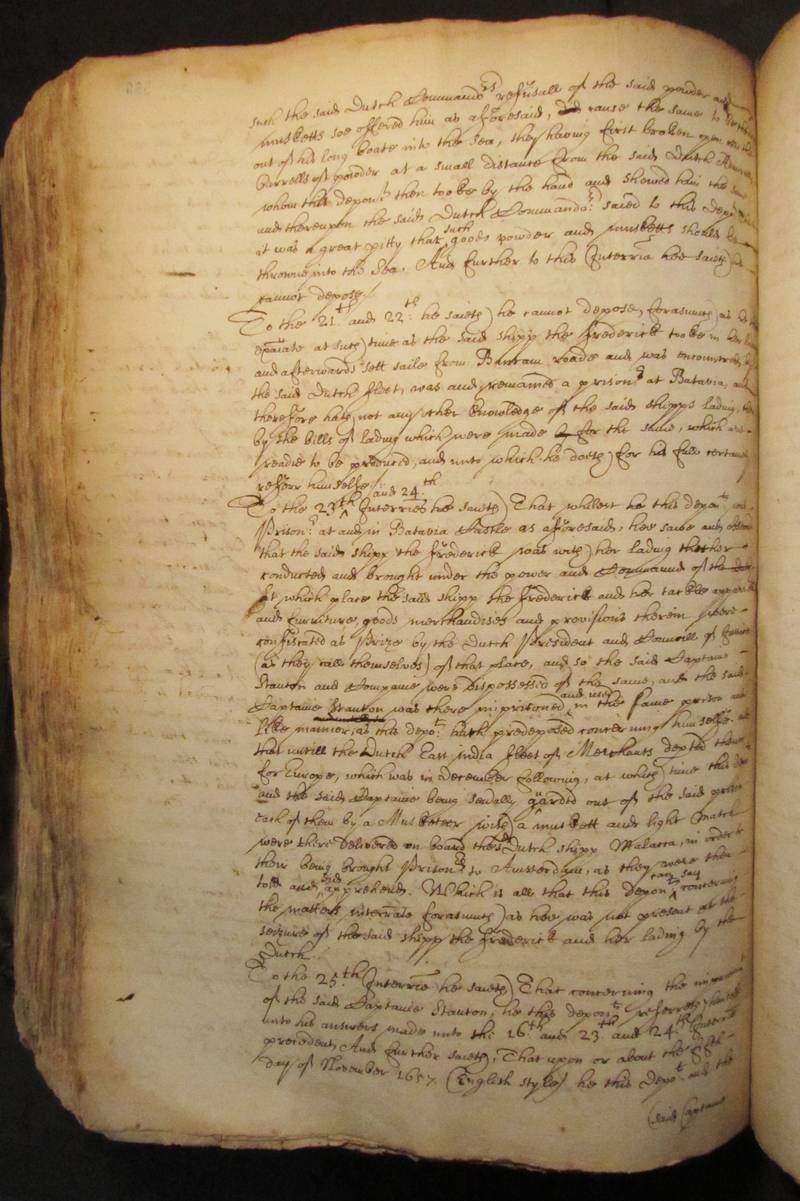 such the said Dutch Commandrs refusall of the said powder and
musketts soe offered him as aforesaid, did cause the same to be throwne
out of his long boate into the Sea, they having first broken open
barrells of powder at a small distance from the said Dutch
whom this depont then tooke by the hand and shewed him the same
and thereupon the said Dutch Commandar saied to this depot
it was a great pitty that such good powder and musketts should be
throwne into the Sea. And further to this Interria hee saieth he
cannot depose/
To the 21th and 22th he saieth he cannot depose, forasmuch as he
at such time as the said shipp the Frederick tooke in her
and afterwards sett saile from Bantam roade and was encountred by
the said Dutch fleet, was and remained a prisonr at Batavia, and
therefore hath not any other knowledge of the said shipps lading, then
by the bills of lading which were made for the same, which are
readie to be produced, and unto which he doeth for his full certaine
referr himselfe/
To the 23th and 24th Interries hee saieth That whilest he this depot was
Prisonr at and in Batavia Castle as aforesaid, hee saw and observed
that the said shipp the Frederick was with her lading thether
conducted and brought under the power and Command of the
At which place the said shipp the Frederick and her tackle apparell
and furniture, goods merchandizes and provisions therein were
confiscated as Prize by the Dutch President and Councill of
(as they call themselves) of that place, and so the said Captaine
Stanton and Companie were dispossessed of the same, and the said
Captaine Stanton was there imprisoned and used in the same prison and
like manner, as this depot hath predeposed concerning himselfe, and
that untill the Dutch East india fleet of Merchants depted thence
for Europe, which was in December following, at which time this depot
and the said Captaine being sevally garded out of the said prison
each of them by a Musketeer with a muskett and light match
were there delivered on board the Dutch shipp Walacra, in order to
their being brought Prisonrs to Amsterdam, as they were then
told and did apprehend. Which is all that this Depont can say concerning
the matters interrate forasmuch as hee was not present at the
seizure of the said shipp the Frederick and her lading by the
Dutch.
To the 25th Interrie he saieth That concerning the
of the said Captaine Stanton, he this deponent referreth himselfe
unto his answers made unto the 16th and 23th and 24th Interries
precedent, And further saieth, That upon or about the
day of November 1657 (English style) he this Depot and the
said Captaine